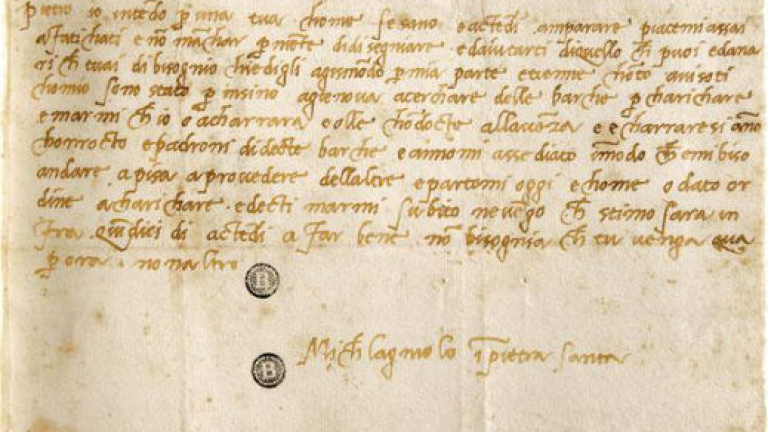 pietro io intēdo p una tua chome se sano e actēdi amparare piacemi assai
afatichati e nō māchar p niēte di disegniare e daiutarti di quello ch puoi e dana
ri ch tuai di bisognio chiedigli agismōdo p mia parte e tienne chōto avisoti
chomio sono stato p insino agienova acerchare delle barche p charichare
e marmi ch io o acharrara e olle chōdocte allavēza e e charraresi āno
chorrocto e padroni di decte barche e annomi assediato īmodo ch emi biso
andare a pisa a provedere dellaltre e partomi oggi e chome o dato or
dine a charichare e decti marmi subito ne vēgo ch stimo sara in
fra quīdici di actēdi a far bene nō bisognia ch tu venga qua
p ora . non altro
B
Michlagniolo ī pietra santa
B